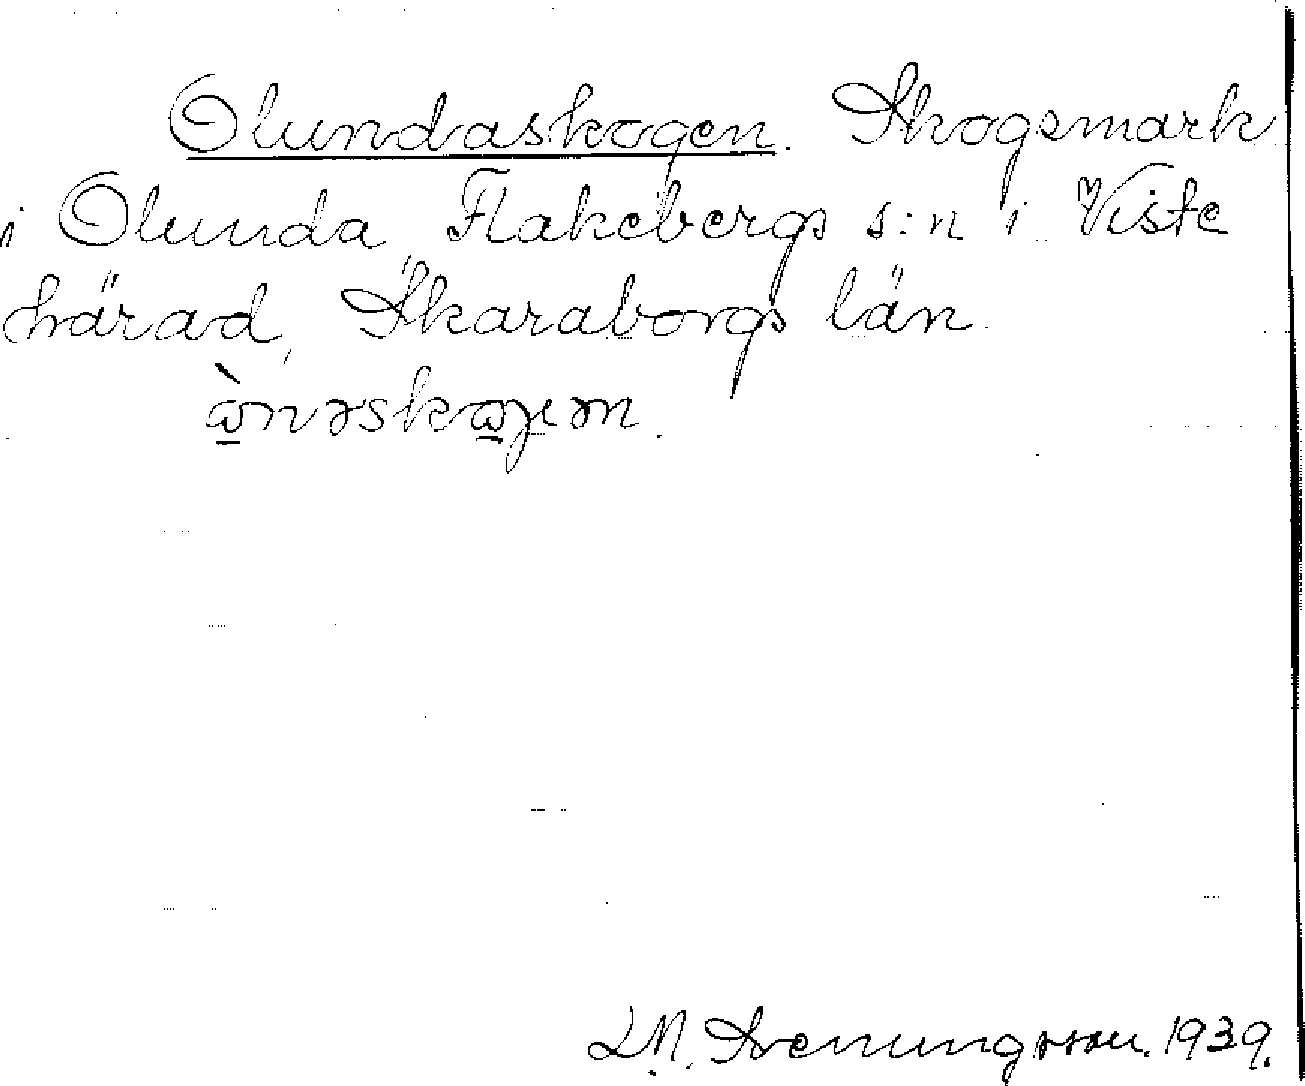 Olundaskogen. Skogsmark
i Olunda, Flakebergs s:n i Viste
härad, Skaraborgs län.
L.N. Svenungsson. 1939.